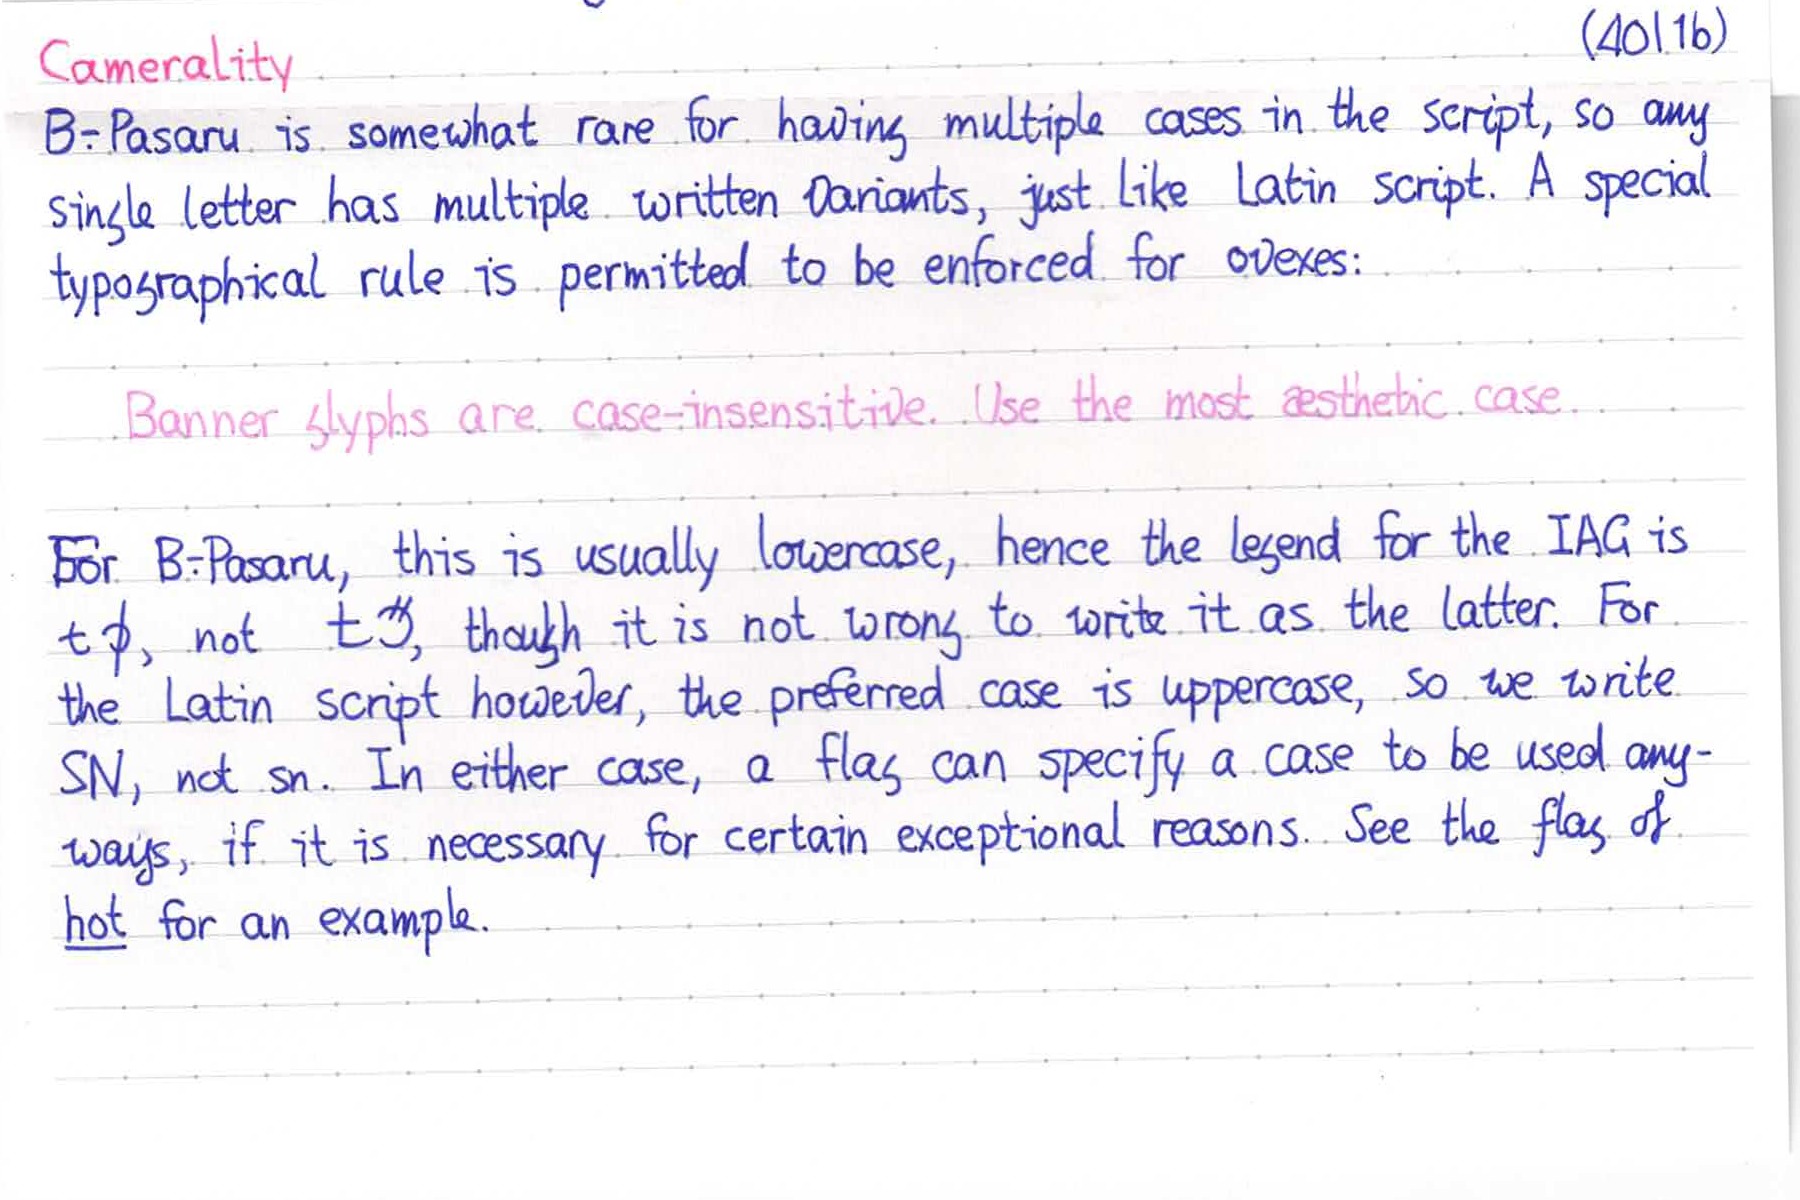 (40|1b)
Camerality
B÷Pasaru is somewhat rare for having multiple cases in the script, so any
single letter has multiple written variants, just like Latin script. A special
typographical rule is permitted to be enforced for ovexes:
Banner glyphs are case-insensitive. Use the most æsthetic case.
For B÷Pasaru, this is usually lowercase, hence the legend for the IAG is
not though it is not wrong to write it as the latter. For
the Latin script however, the preferred case is uppercase, so we write
SN, not sn. In either case, a flag can specify a case to be used any-
ways, if it is necessary for certain exceptional reasons. See the flag of
hot for an example.